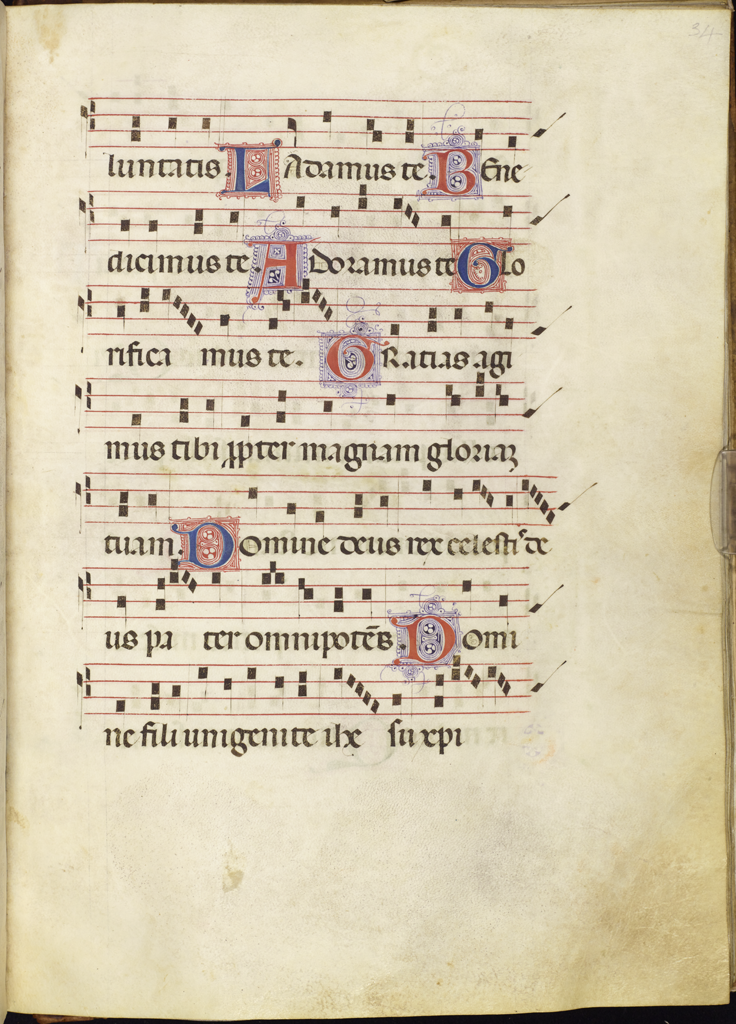 34
luntatis. LAdamus te. BEne
dicimus te. ADoramus te GLo
rifica mus te. GRatias agi
mus tibi ꝓpter magnam gloriaꝫ
tuam. Domine deus rex celestis de
us pa ter omnipotēs. Domi
ne fili unigenite ihe su xpi